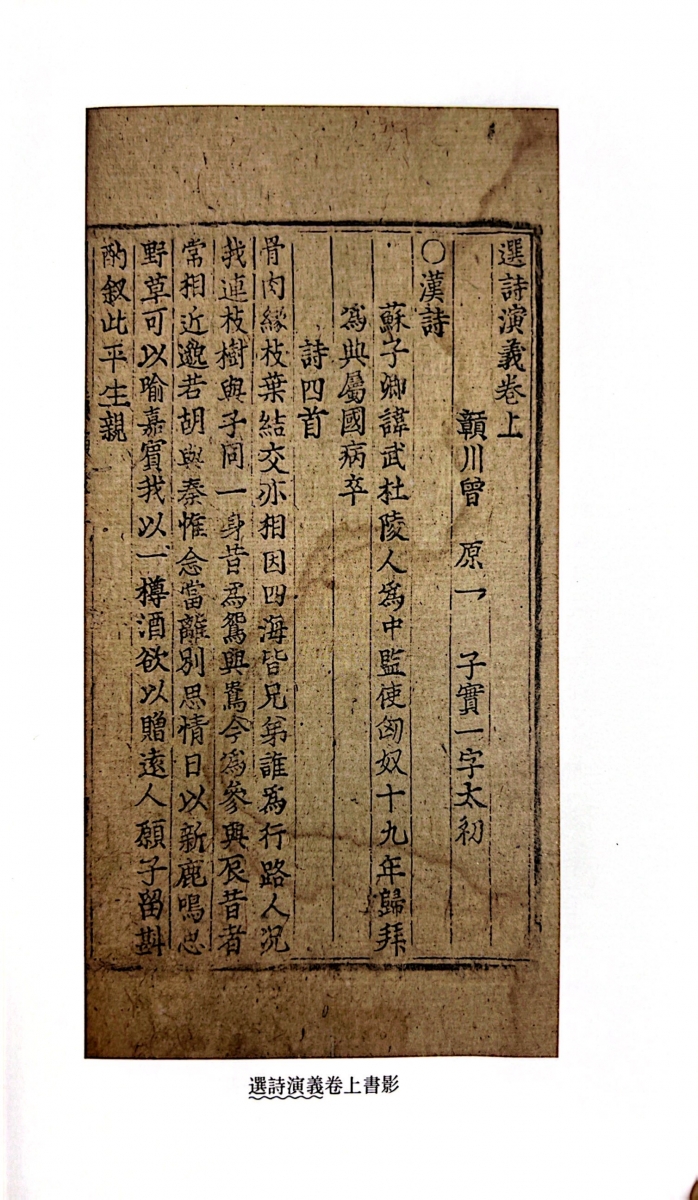 選詩演義卷上
贛川曾　原一　子實一字太初
〇漢詩
蘇子卿諱武杜陵人爲中監使匈奴十九年歸拜
爲典屬國病卒
詩四首
骨肉緣枝葉結交亦相因四海皆兄弟誰爲行路人况
我連枝樹與子同一身昔爲鴛與鴦今爲參與辰昔者
常相近邈若胡與秦惟念當離別思情日以新鹿鳴思
野草可以喻嘉賓我以一樽酒欲以贈遠人願子留斟
酌叙此平生親
選詩演義卷上書影